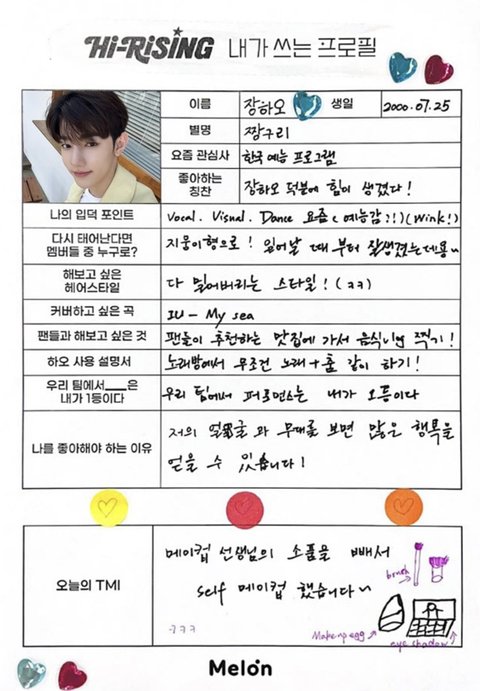 Hi-RiSiNG 내가 쓰는 프로필
이름 장하오 생일 2000.07.25
별명 짱구리
요즘 관심사 한국 예능 프로그램
좋아하는
칭찬 장하오 덕분에 힘이 생겼다!
나의 입덕 포인트 Vocal. Visual. Dance 요즘 (예능감?!) (Wink!)
다시 태어난다면
멤버들 중 누구로? 지웅이형으로! 일어날 때 부터 잘생겼는데용~
해보고 싶은
헤어스타일 다 밀어버리는 스타일! (ㅋㅋ)
커버하고 싶은 곡 IU - My sea
팬들과 해보고 싶은 것 팬들이 추천하는 맛집에 가서 음식 찍기!
하오 사용 설명서 노래방에서 무조건 노래+춤 같이 하기!
우리 팀에서___은
내가 1등이다 우리 팀에서 퍼포먼스는 내가 1등이다
나를 좋아해야 하는 이유 저의 얼굴과 무대를 보면 많은 행복을
얻을 수 있습니다!
오늘의 TMI 메이컵 선생님의 소품을 빼서
self 메이컵 했습니다~
brush
ㅋㅋㅋ
Make up egg
eye shadow
Melon